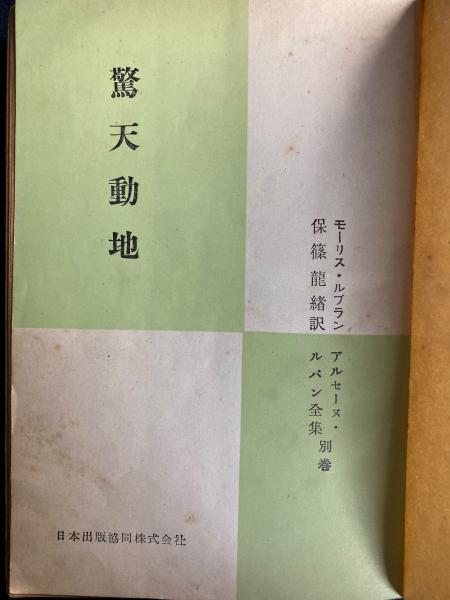 驚天動地
モーリス・ルブラン
保篠龍緒訳
アルセーヌ・
ルパン全集別巻
日本出版協同株式会社